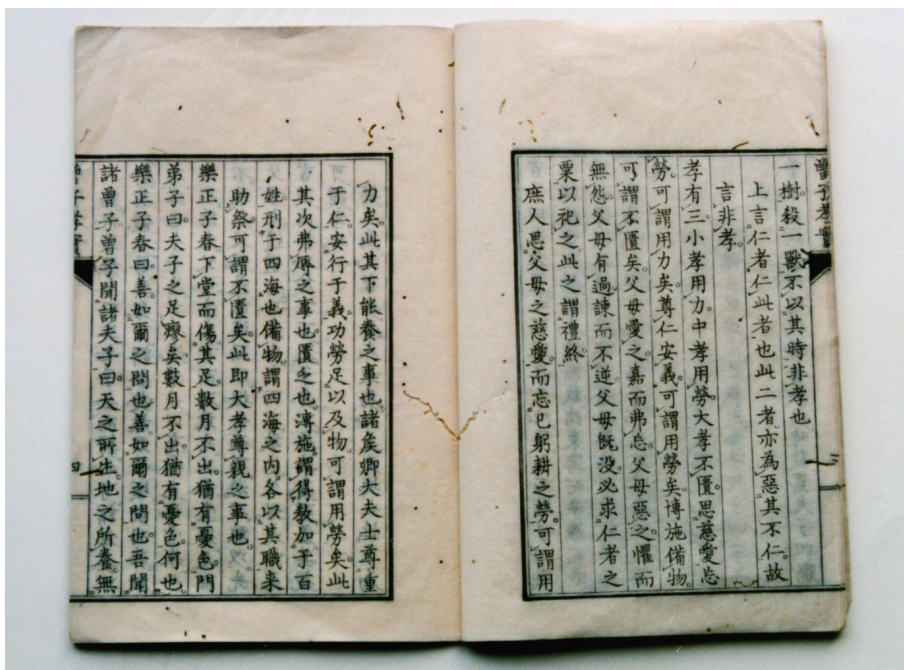 曾子孝實
一樹殺一獸不以其時非孝也
上言仁者仁此者也此二者亦為惡其不仁故
言非孝。
孝有三。小孝用力。中孝用勞。大孝不匱。思慈愛忘
勞。可謂用力矣。尊仁安義。可謂用勞矣。博施備物。
可謂不匱矣。父母愛之。嘉而弗忘。父母惡之。懼而
無怨。父母有過。諫而不逆。父母既沒。必求仁者之
粟以祀之。此之謂禮終
庶人思父母之慈愛。而忘己躬耕之勞。可謂用
力矣。此其下能養之事也。諸矦卿大夫士尊重
于仁。安行于義。功勞足以及物。可謂用勞矣。此
其次弗辱之事也。匱乏也。溥施。謂得敎加于百
姓。刑于四海也。備物。謂四海之内。各以其職来
助祭。可謂不匱矣。此即大孝尊親之事也。
樂正子春下堂而傷其足。數月不出。猶有憂色。門
弟子曰。夫子之足瘳矣。數月不出。猶有憂色。何也
樂正子春曰。善如爾之問也。善如爾之問也。吾聞
諸曾子。曾子聞諸夫子曰。天之所生。地之所養。無
曾子孝實
四